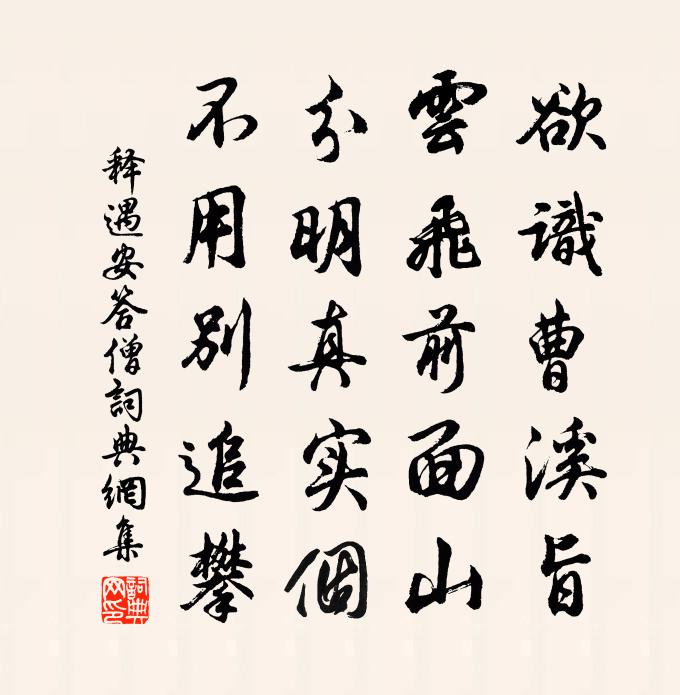 欲識曹溪旨
雲飛前面山
分明真实個
不用別追攀
释遇安答僧詞典網集
詞典網印